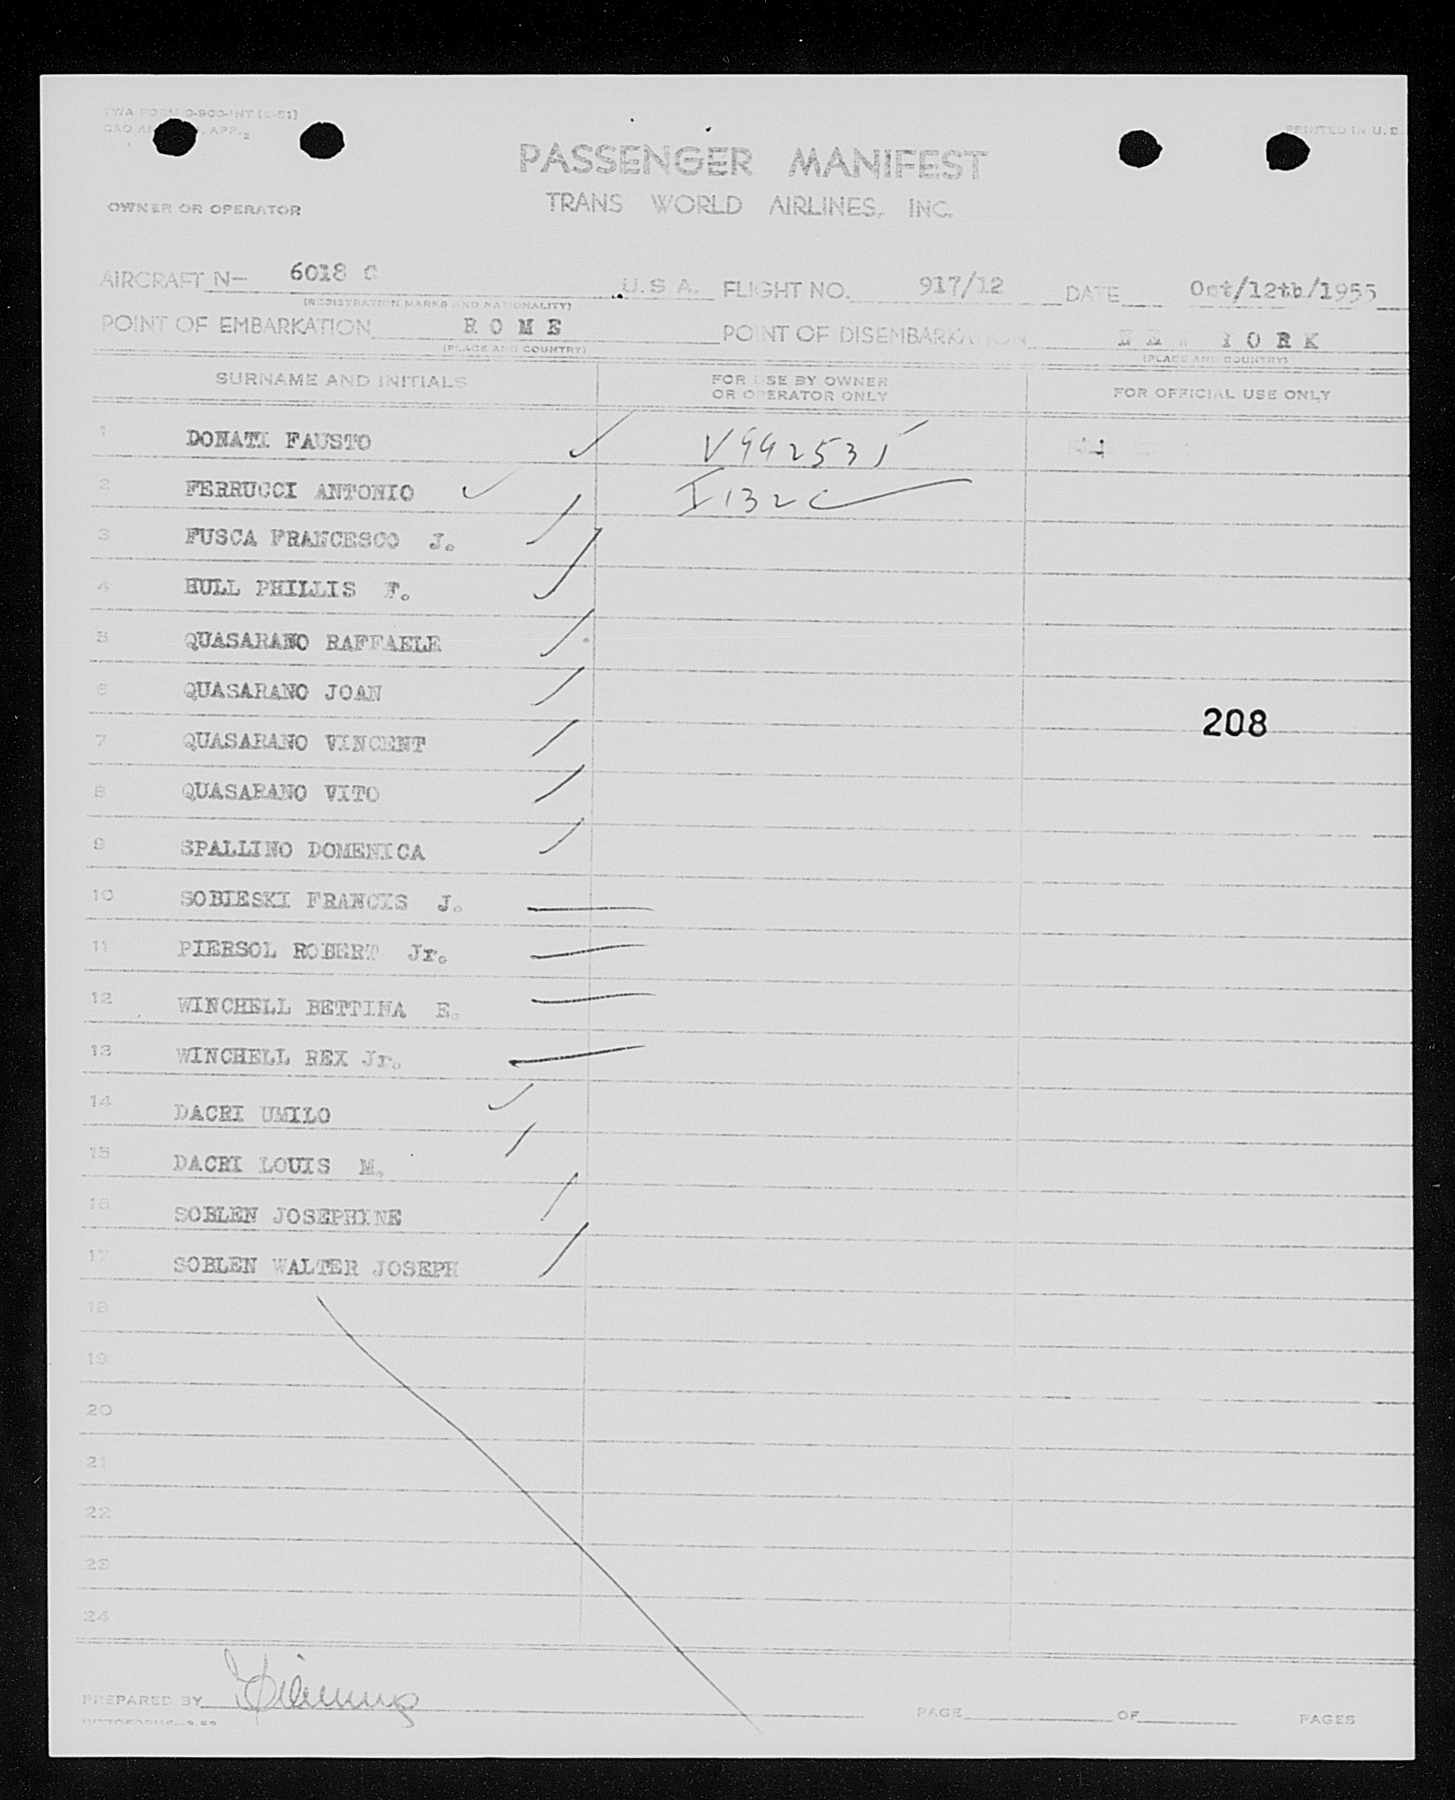 PRINTED IN U.S.
PASSENGER MANIFEST
TRANS WORLD AIRLINES, INC.
OWNER OR OPERATOR
AIRCRAFT N- 6018 C U.S.A. FLIGHT NO. 917/12 DATE Oct/12th/1955
(REGISTRATION MARKS AND NATIONALITY)
POINT OF EMBARKATION ROME POINT OF DISEMBARKATION YORK
(PLACE AND COUNTRY) (PLACE AND COUNTRY)
SURNAME AND INITIALS FOR USE BY OWNER OR OPERATOR ONLY FOR OFFICIAL USE ONLY
1 DONATI FAUSTO V992535
2 FERRUCCI ANTONIO I132C
3 FUSCA FRANCESCO J.
4 HULL PHILLIS F.
5 QUASARANO RAFFAELE
6 QUASARANO JOAN
208
7 QUASARANO VINCENT
8 QUASARANO VITO
9 SPALLINO DOMENICA
10 SOBIESKI FRANCIS J.
11 PIERSOL ROBERT Jr.
12 WINCHELL BETTINA E.
13 WINCHELL REX Jr.
14 DACRI UMILO
15 DACRI LOUIS M.
16 SOBLEN JOSEPHINE
17 SOBLEN WALTER JOSEPH
18
19
20
21
22
23
24
PREPARED BY PAGE OF PAGES